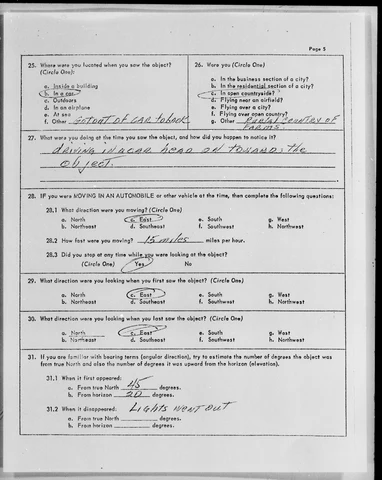 Page 5
25. Where were you located when you saw the object?
(Circle One):
a. Inside a building
b. In a car
c. Outdoors
d. In an airplane
e. At sea
f. Other GET OUT OF CAR TO LOOK
26. Were you (Circle One)
a. In the business section of a city?
b. In the residential section of a city?
c. In open countryside?
d. Flying near an airfield?
e. Flying over a city?
f. Flying over open country?
g. Other RURAL COUNTRY OF
FARMS
27. What were you doing at the time you saw the object, and how did you happen to notice it?
DRIVING IN CAR HEAD ON TOWARD THE
OBJECT
28. IF you were MOVING IN AN AUTOMOBILE or other vehicle at the time, then complete the following questions:
28.1 What direction were you moving? (Circle One)
a. North c. East e. South g. West
b. Northeast d. Southeast f. Southwest h. Northwest
28.2 How fast were you moving? 15 miles miles per hour.
28.3 Did you stop at any time while you were looking at the object?
(Circle One) Yes No
29. What direction were you looking when you first saw the object? (Circle One)
a. North c. East e. South g. West
b. Northeast d. Southeast f. Southwest h. Northwest
30. What direction were you looking when you last saw the object? (Circle One)
a. North c. East e. South g. West
b. Northeast d. Southeast f. Southwest h. Northwest
31. If you are familiar with bearing terms (angular direction), try to estimate the number of degrees the object was
from true North and also the number of degrees it was upward from the horizon (elevation).
31.1 When it first appeared:
a. From true North 45 degrees.
b. From horizon 20 degrees.
31.2 When it disappeared: LIGHTS WENT OUT
a. From true North degrees.
b. From horizon degrees.